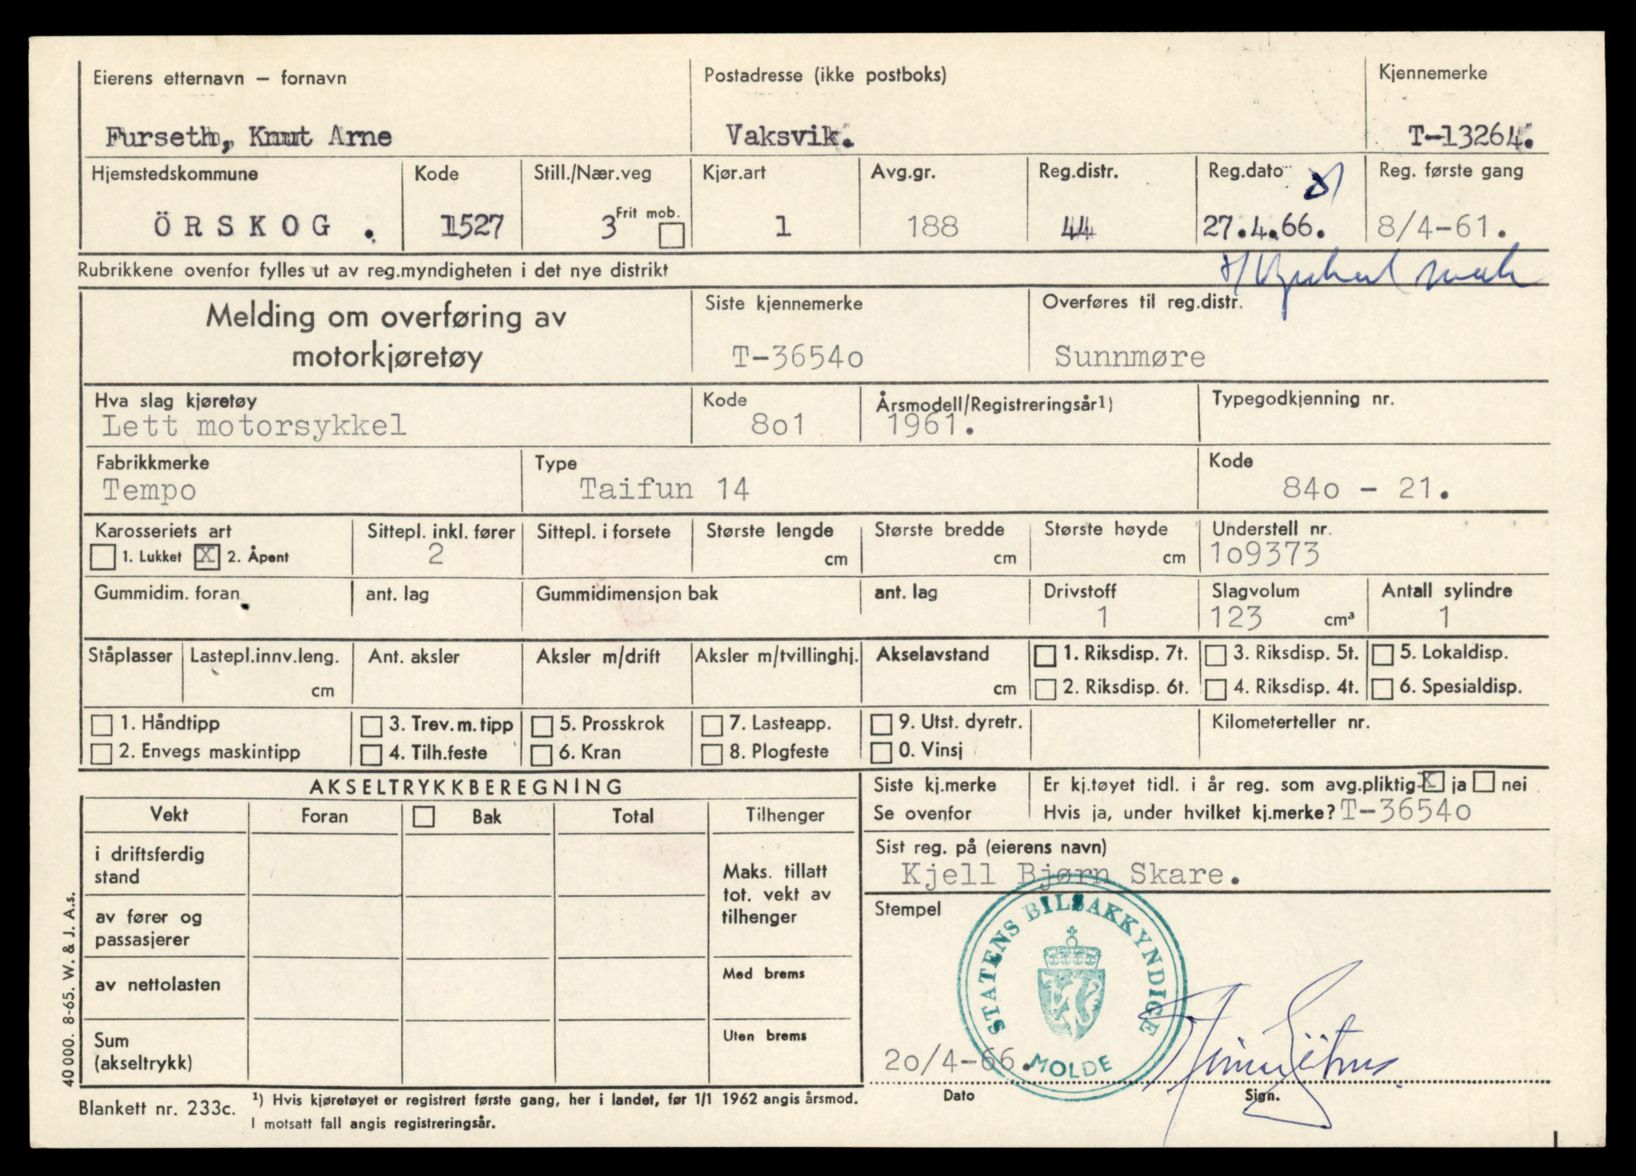 Eierens etternavn — fornavn
Postadresse (ikke postboks)
Kjennemerke
Furseth, Knut Arne
Vaksvik.
T-13264.
Hjemstedskommune
Kode
Still./Nær.veg
Kjør.art
Avg.gr.
Reg.distr.
Reg.dato
Reg. første gang
ÖRSKOG .
1527
3
Frit mob.
1
188
44
27.4.66.
8/4-61.
Rubrikkene ovenfor fylles ut av reg.myndigheten i det nye distrikt
Melding om overføring av
motorkjøretøy
Siste kjennemerke
T-3654o
Overføres til reg.distr.
Sunnmøre
Hva slag kjøretøy
Lett motorsykkel
Kode
8o1
Årsmodell/Registreringsår1)
1961.
Typegodkjenning nr.
Fabrikkmerke
Tempo
Type
Taifun 14
Kode
84o - 21.
Karosseriets art
1. Lukket X 2. Åpent
Sittepl. inkl. fører
2
Sittepl. i forsete
Største lengde
cm
Største bredde
cm
Største høyde
cm
Understell nr.
1o9373
Gummidim. foran
ant. lag
Gummidimensjon bak
ant. lag
Drivstoff
1
Slagvolum
123 cm³
Antall sylindre
1
Ståplasser
Lastepl.innv.leng.
cm
Ant. aksler
Aksler m/drift
Aksler m/tvillinghj.
Akselavstand
cm
1. Riksdisp. 7t.
3. Riksdisp. 5t.
5. Lokaldisp.
2. Riksdisp. 6t.
4. Riksdisp. 4t.
6. Spesialdisp.
1. Håndtipp
3. Trev. m. tipp
5. Prosskrok
7. Lasteapp.
9. Utst. dyretr.
Kilometerteller nr.
2. Envegs maskintipp
4. Tilh.feste
6. Kran
8. Plogfeste
0. Vinsj
AKSELTRYKKBEREGNING
Vekt
Foran
Bak
Total
Tilhenger
i driftsferdig
stand
av fører og
passasjerer
av nettolasten
Sum
(akseltrykk)
Maks. tillatt
tot. vekt av
tilhenger
Med brems
Uten brems
Siste kj.merke
Se ovenfor
Er kj.tøyet tidl. i år reg. som avg.pliktig X ja nei
Hvis ja, under hvilket kj.merke? T-3654o
Sist reg. på (eierens navn)
Kjell Bjørn Skare.
Stempel
STATENS BILSAKKYNDIGE
MOLDE
2o/4-66.
Dato
Sign.
40 000. 8-65. W. & J. A.s.
Blankett nr. 233c.
1) Hvis kjøretøyet er registrert første gang, her i landet, før 1/1 1962 angis årsmod.
I motsatt fall angis registreringsår.